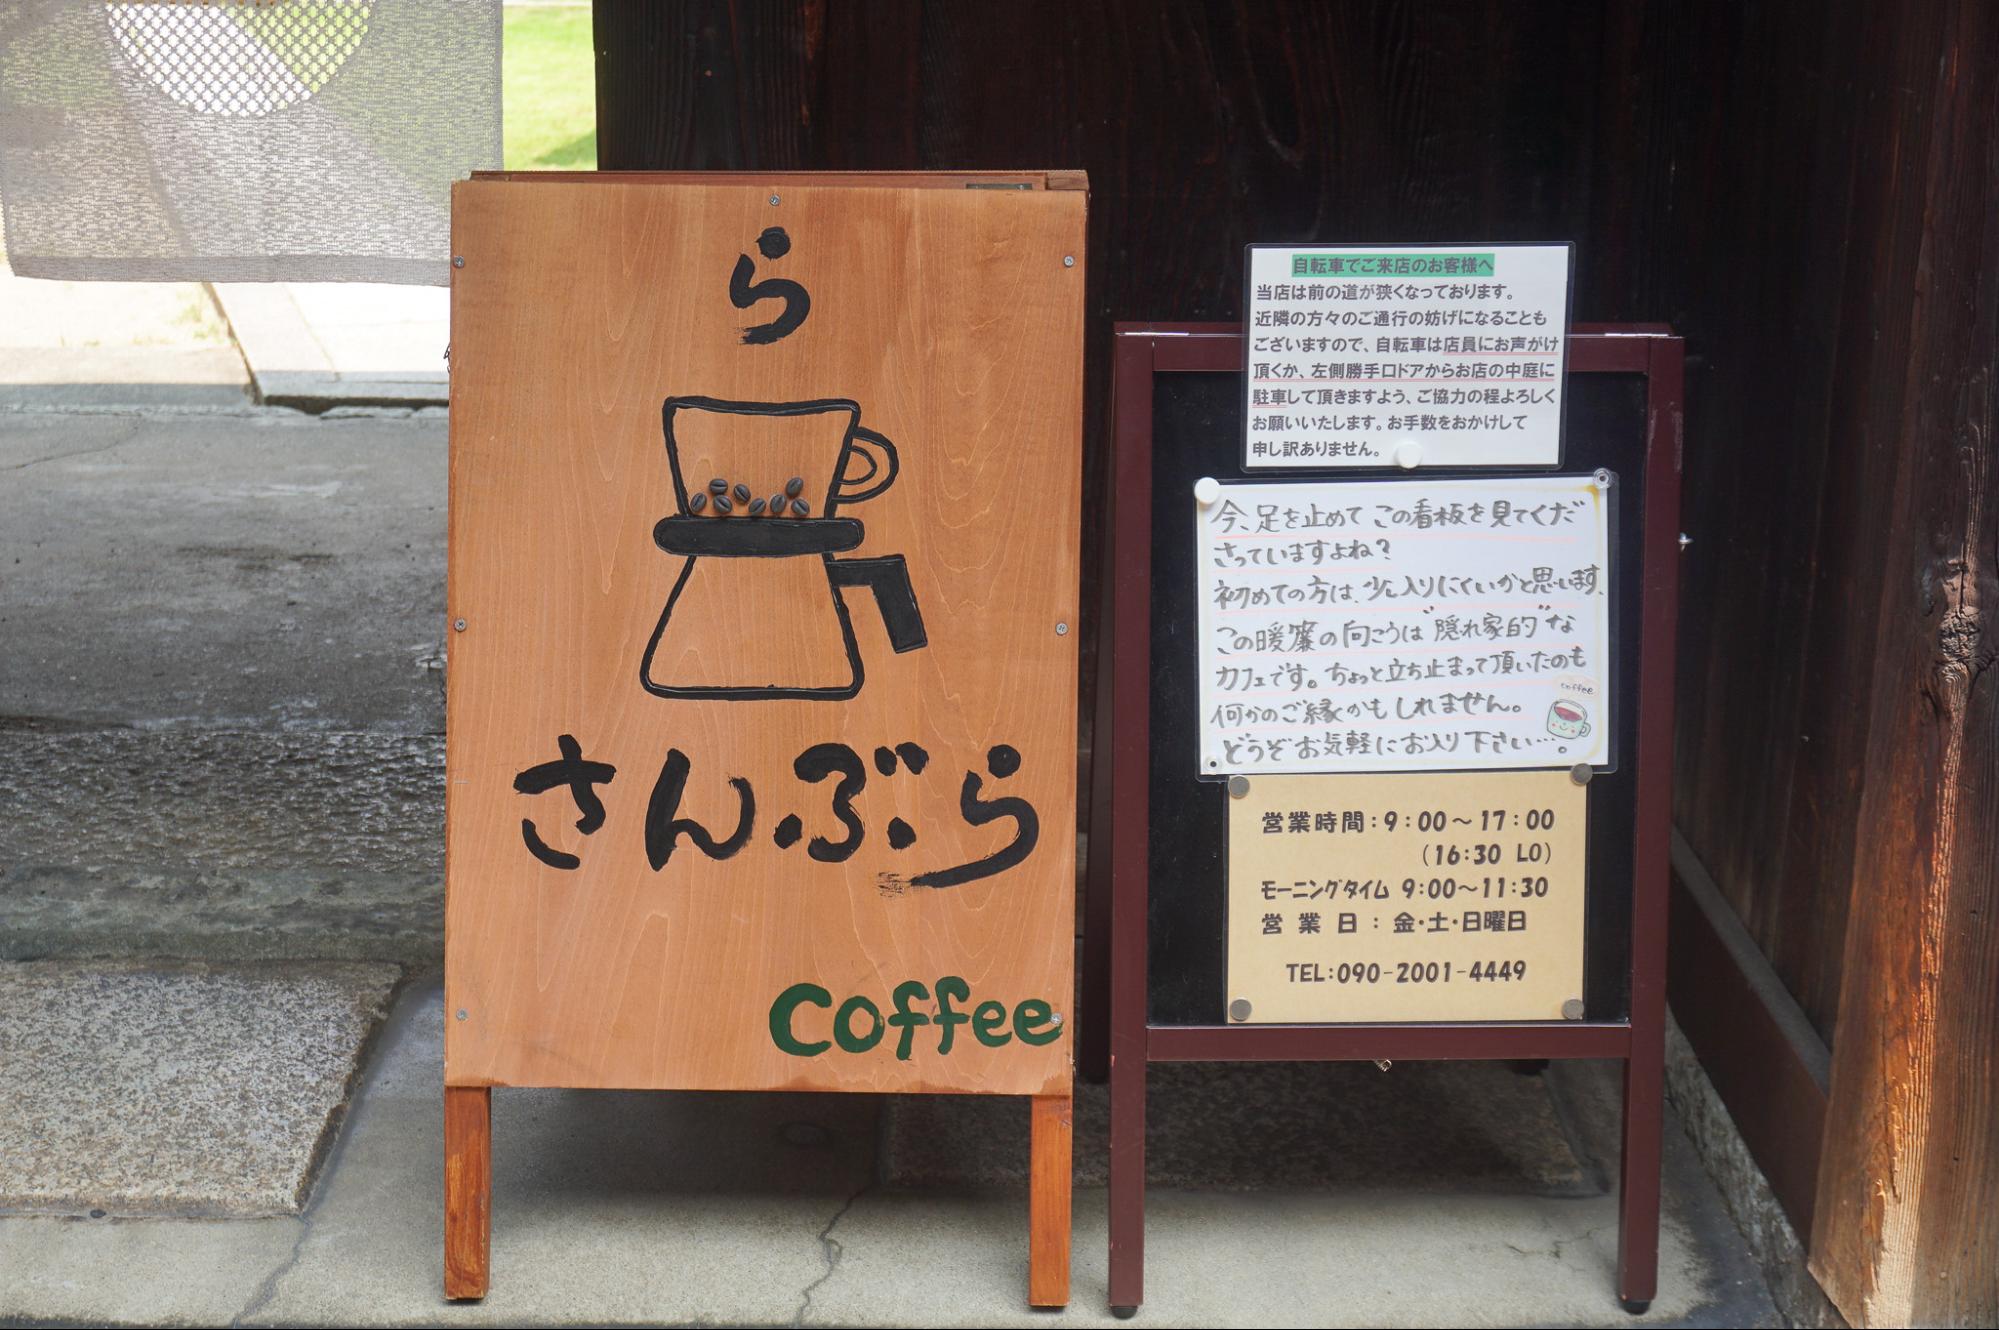 ら
さんぶら
coffee
自転車でご来店のお客様へ
当店は前の道が狭くなっております。
近隣の方々のご通行の妨げになることも
ございますので、自転車は店員にお声がけ
頂くか、左側勝手口ドアからお店の中庭に
駐車して頂きますよう、ご協力の程よろしく
お願いいたします。お手数をおかけして
申し訳ありません。
今、足を止めてこの看板を見てくだ
さっていますよね?
初めての方は、少し入りにくいかと思います。
この暖簾の向こうは"隠れ家的"な
カフェです。ちょっと立ち止まって頂いたのも
coffee
何かのご縁かもしれません。
どうぞお気軽にお入り下さい…。
営業時間:9:00~17:00
(16:30 LO)
モーニングタイム 9:00~11:30
営業日:金・土・日曜日
TEL:090-2001-4449